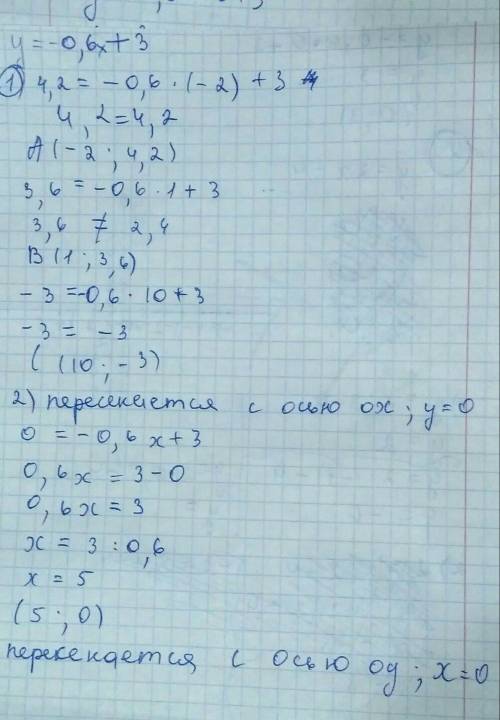 y = -0,6x + 3
1) 4,2 = -0,6 · (-2) + 3
4,2 = 4,2
A (-2 ; 4,2)
3,6 = -0,6 · 1 + 3
3,6 ≠ 2,4
B (1 ; 3,6)
-3 = -0,6 · 10 + 3
-3 = -3
C (10 ; -3)
2) пересекается с осью ox ; y = 0
0 = -0,6x + 3
0,6x = 3 - 0
0,6x = 3
x = 3 : 0,6
x = 5
(5 ; 0)
с осью oy ; x = 0